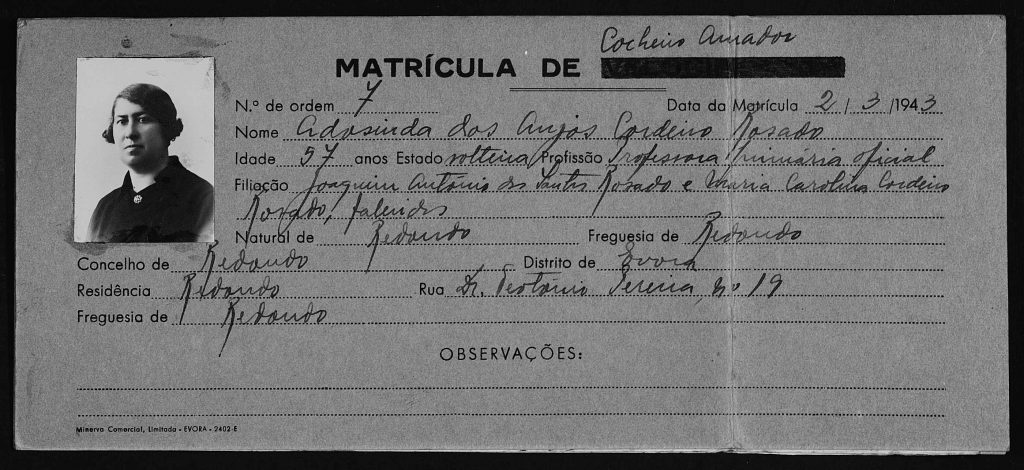 Cocheiro Amador
MATRÍCULA DE
N.º de ordem 7 Data da Matrícula 2 / 3 /1943
Nome Adosinda dos Anjos Cordeiro Rosado
Idade 57 anos Estado solteira Profissão Professora Primária oficial
Filiação Joaquim António dos Santos Rosado e Maria Carolina Cordeiro
Rosado, falecidos
Natural de Redondo Freguesia de Redondo
Concelho de Redondo Distrito de Evora
Residência Redondo Rua Dr. Teotónio Pereira, nº 19
Freguesia de Redondo
OBSERVAÇÕES:
Minerva Comercial, Limitada - EVORA - 2402-E